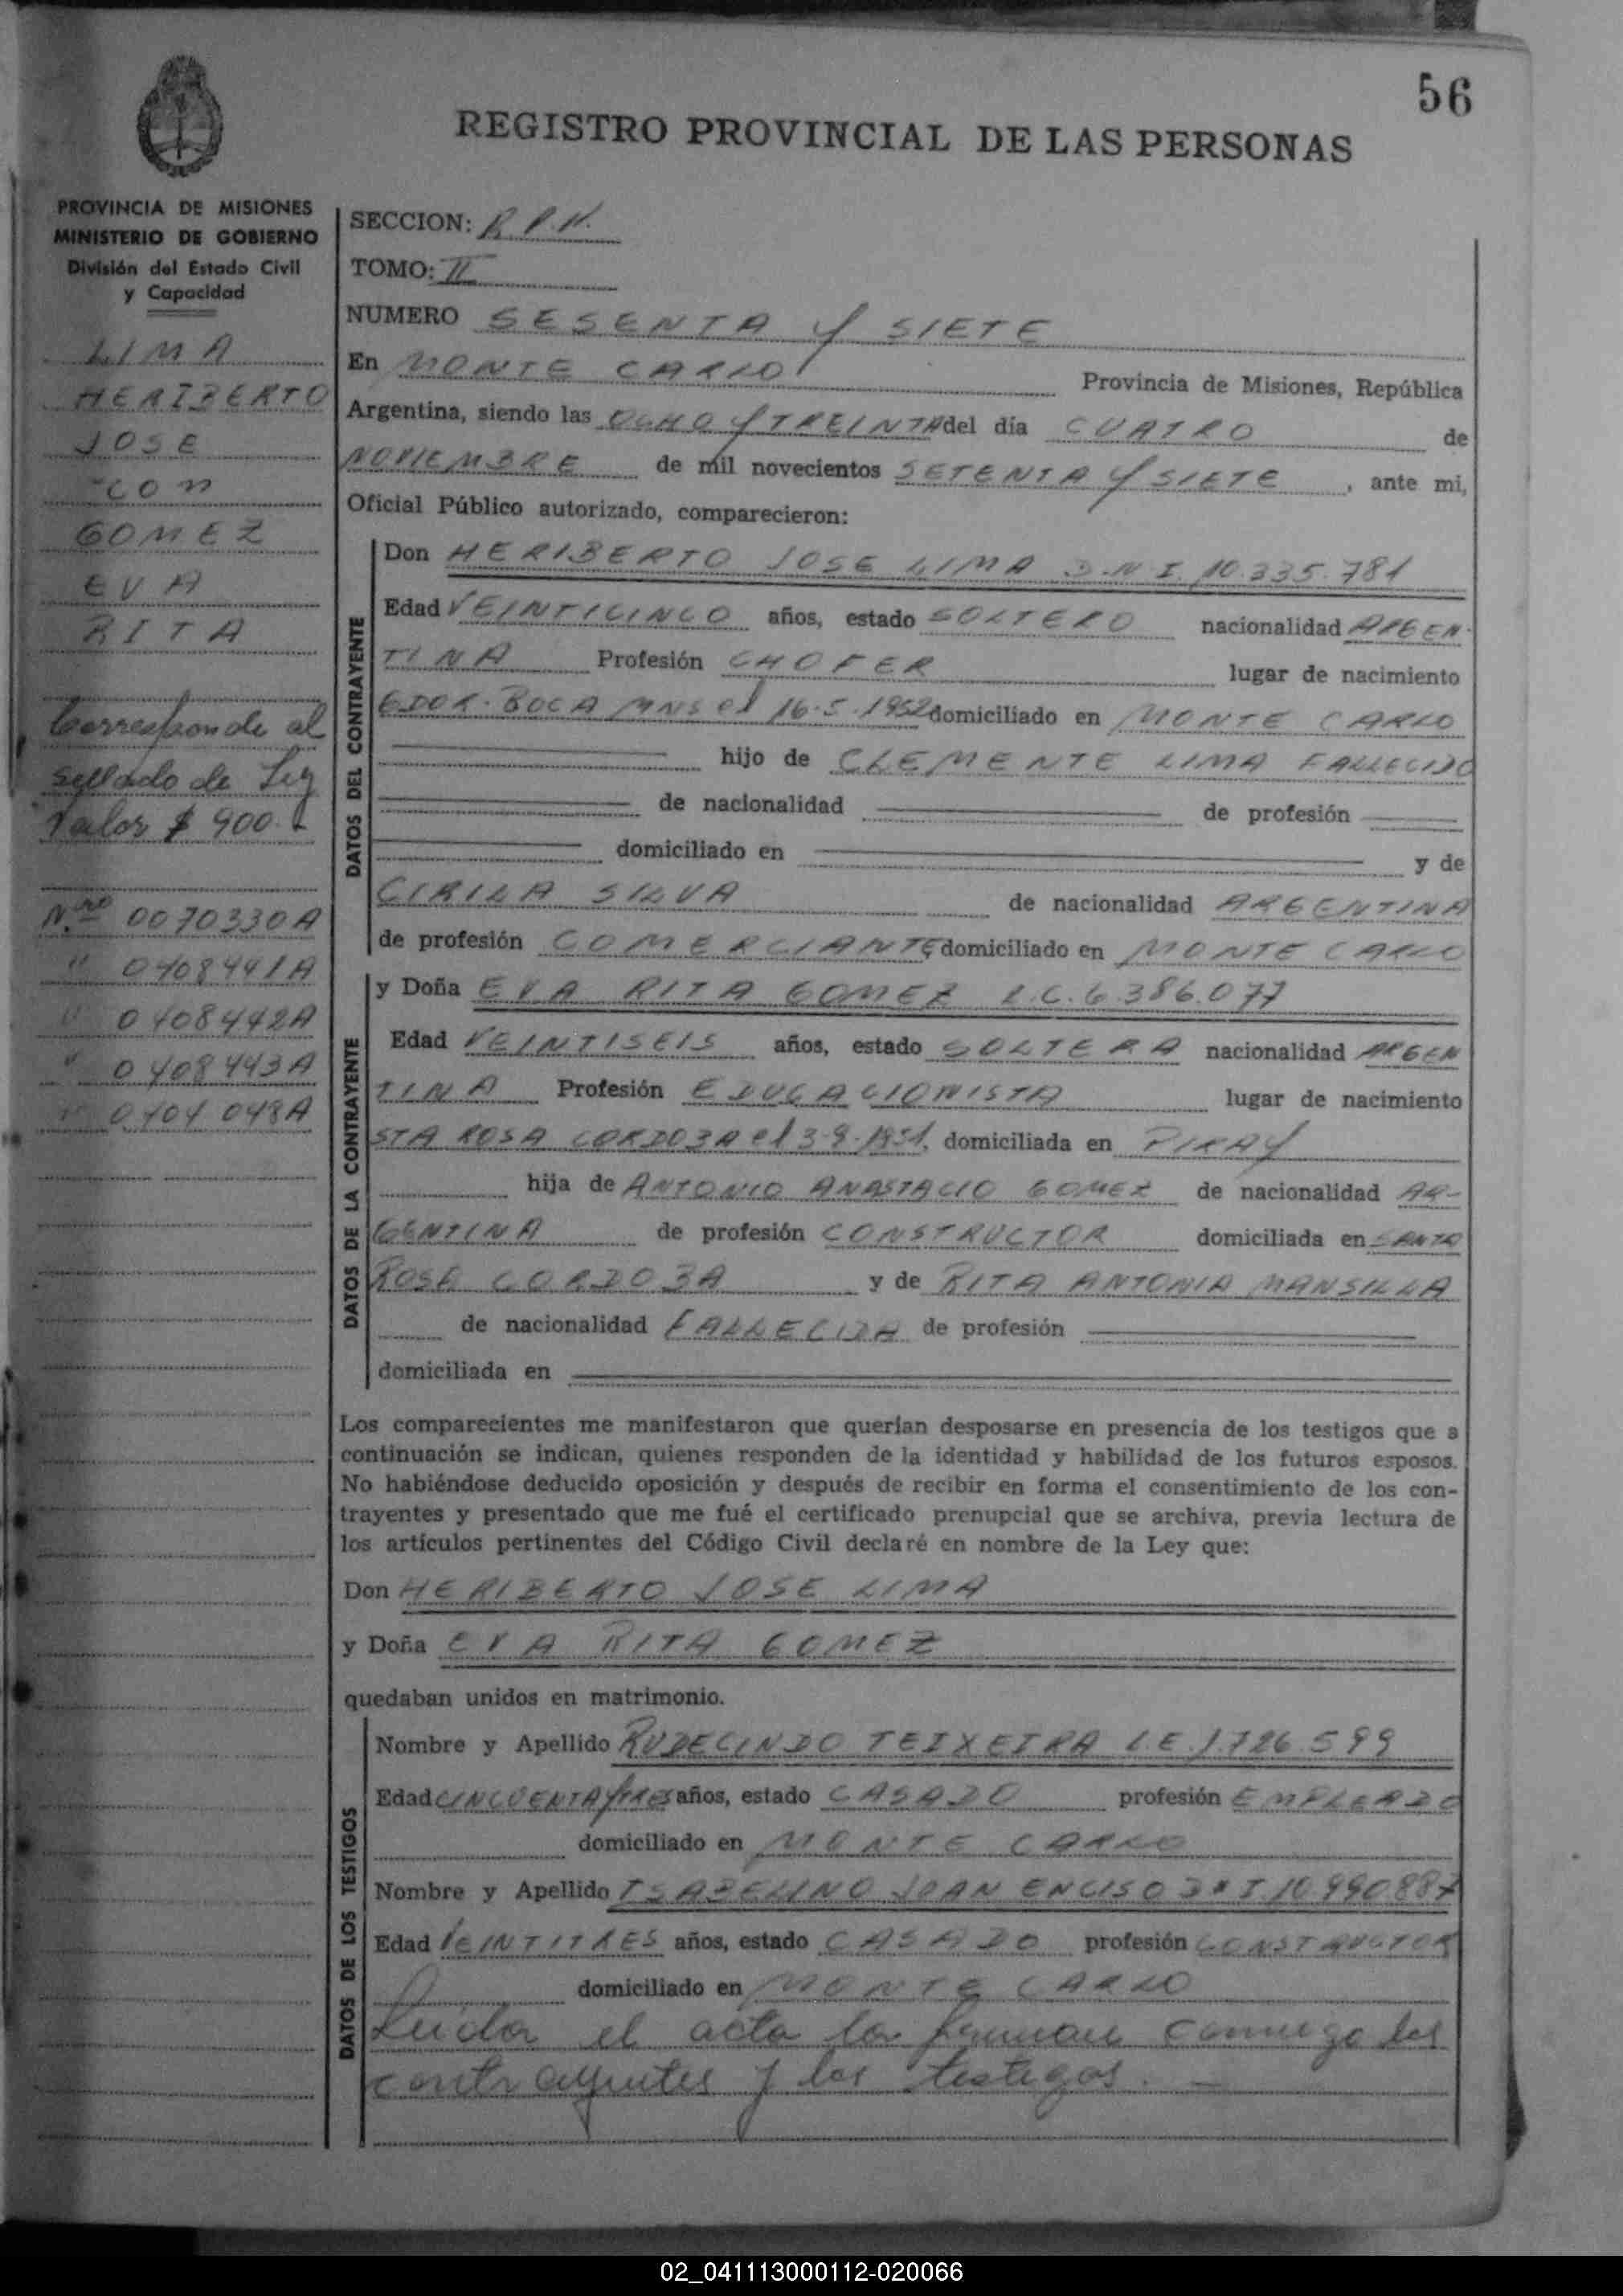 56
REGISTRO PROVINCIAL DE LAS PERSONAS
PROVINCIA DE MISIONES
MINISTERIO DE GOBIERNO
División del Estado Civil
y Capacidad
LIMA
HERIBERTO
JOSE
-CON
GOMEZ
EVA
RITA
Corresponde al
sellado de Ley
Valor $ 900.-
N.ro 0070330A
" 0408441A
" 0408442A
" 0408443A
" 0404048A
SECCION: R.P.N.
TOMO: II
NUMERO SESENTA Y SIETE
En MONTE CARLO Provincia de Misiones, República
Argentina, siendo las OCHO Y TREINTA del día CUATRO de
NOVIEMBRE de mil novecientos SETENTA Y SIETE, ante mi,
Oficial Público autorizado, comparecieron:
DATOS DEL CONTRAYENTE
Don HERIBERTO JOSE LIMA D.N.I. 10.335.781
Edad VEINTICINCO años, estado SOLTERO nacionalidad ARGEN-
TINA Profesión CHOFER lugar de nacimiento
GDOR. ROCA MNS el 16-5-1952 domiciliado en MONTE CARLO
hijo de CLEMENTE LIMA FALLECIDO
de nacionalidad de profesión
domiciliado en y de
CIRILA SILVA de nacionalidad ARGENTINA
de profesión COMERCIANTE domiciliado en MONTE CARLO
DATOS DE LA CONTRAYENTE
y Doña EVA RITA GOMEZ L.C. 6.386.077
Edad VEINTISEIS años, estado SOLTERA nacionalidad ARGEN
TINA Profesión EDUCACIONISTA lugar de nacimiento
STA ROSA CORDOBA el 3-9-1951, domiciliada en PIRAY
hija de ANTONIO ANASTACIO GOMEZ de nacionalidad AR-
GENTINA de profesión CONSTRUCTOR domiciliada en SANTA
ROSA CORDOBA y de RITA ANTONIA MANSILLA
de nacionalidad FALLECIDA de profesión
domiciliada en
Los comparecientes me manifestaron que querían desposarse en presencia de los testigos que a
continuación se indican, quienes responden de la identidad y habilidad de los futuros esposos.
No habiéndose deducido oposición y después de recibir en forma el consentimiento de los con-
trayentes y presentado que me fué el certificado prenupcial que se archiva, previa lectura de
los artículos pertinentes del Código Civil declaré en nombre de la Ley que:
Don HERIBERTO JOSE LIMA
y Doña EVA RITA GOMEZ
quedaban unidos en matrimonio.
DATOS DE LOS TESTIGOS
Nombre y Apellido RUDECINDO TEIXEIRA L.E. 1.726.599
Edad CINCUENTA Y TRES años, estado CASADO profesión EMPLEADO
domiciliado en MONTE CARLO
Nombre y Apellido ISABELINO JUAN ENCISO D.N.I. 10.990.887
Edad VEINTITRES años, estado CASADO profesión CONSTRUCTOR
domiciliado en MONTE CARLO
Leida el acta la firman conmigo los
contrayentes y los testigos. -
02_041113000112-020066